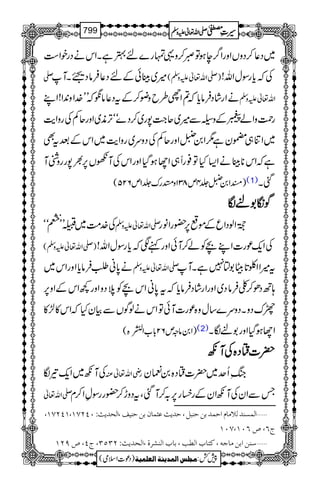 سیرتِ مصطفیٰ صلی اللہ تعالیٰ علیہ وسلم 799
میں دعا کردوں اور اگر چاہو تو صبر کرو یہی تمہارے لئے بہتر ہے۔ اس نے درخواست
کی کہ یارسول اللہ! (صلی اللہ تعالیٰ علیہ وسلم) میری بینائی کے لئے دعا فرما دیجئے۔ آپ صلی
اللہ تعالیٰ علیہ وسلم نے ارشاد فرمایا کہ تم اچھی طرح وضو کرکے یہ دعا مانگو کہ ’’خداوندا! اپنے
رحمت والے پیغمبر کے وسیلہ سے میری حاجت پوری کردے‘‘ ترمذی اور حاکم کی روایت
میں اتنا ہی مضمون ہے مگر ابن حنبل اور حاکم کی دوسری روایت میں اس کے بعد یہ بھی
ہے کہ اس نابینا نے ایسا کیا تو فوراً ہی اچھا ہو گیا اور اس کی آنکھوں پر بھر پور روشنی آ
گئی۔ (1) (مسند ابن حنبل جلد ۴ ص ۱۳۸ و مستدرک جلد ۱ ص ۵۲۶)
گونگا بولنے لگا
حجۃ الوداع کے موقع پر حضورِ انور صلی اللہ تعالیٰ علیہ وسلم کی خدمت میں قبیلہ ’’خثعم‘‘
کی ایک عورت اپنے بچے کو لے کر آئی اور کہنے لگی کہ یارسول اللہ! (صلی اللہ تعالیٰ علیہ وسلم)
یہ میرا اکلوتا بیٹا بولتا نہیں ہے۔ آپ صلی اللہ تعالیٰ علیہ وسلم نے پانی طلب فرمایا اور اس میں
ہاتھ دھو کر کلی فرمادی اور ارشاد فرمایا کہ یہ پانی اس بچے کو پلا دو اور کچھ اس کے اوپر
چھڑک دو۔ دوسرے سال وہ عورت آئی تو اس نے لوگوں سے بیان کیا کہ اس کا لڑکا
اچھا ہو گیا اور بولنے لگا۔ (2) (ابن ماجہ ص ۲۶ باب النشرہ)
حضرت قتادہ کی آنکھ
جنگِ اُحد میں حضرت قتادہ بن نعمان رضی اللہ تعالیٰ عنہ کی آنکھ میں ایک تیر لگا
جس سے ان کی آنکھ ان کے رخسار پر بہہ کر آگئی، یہ دوڑ کر حضور رسول اکرم صلی اللہ تعالیٰ
......المسند للامام احمد بن حنبل، حدیث عثمان بن حنیف، الحدیث: ۱۷۲۴۰، ۱۷۲۴۱،
ج۶، ص ۱۰۶، ۱۰۷
......سنن ابن ماجہ، کتاب الطب، باب النشرة، الحدیث: ۳۵۳۲، ج ۴، ص ۱۲۹
پیش کش: مجلس المدینة العلمیة (دعوتِ اسلامی)